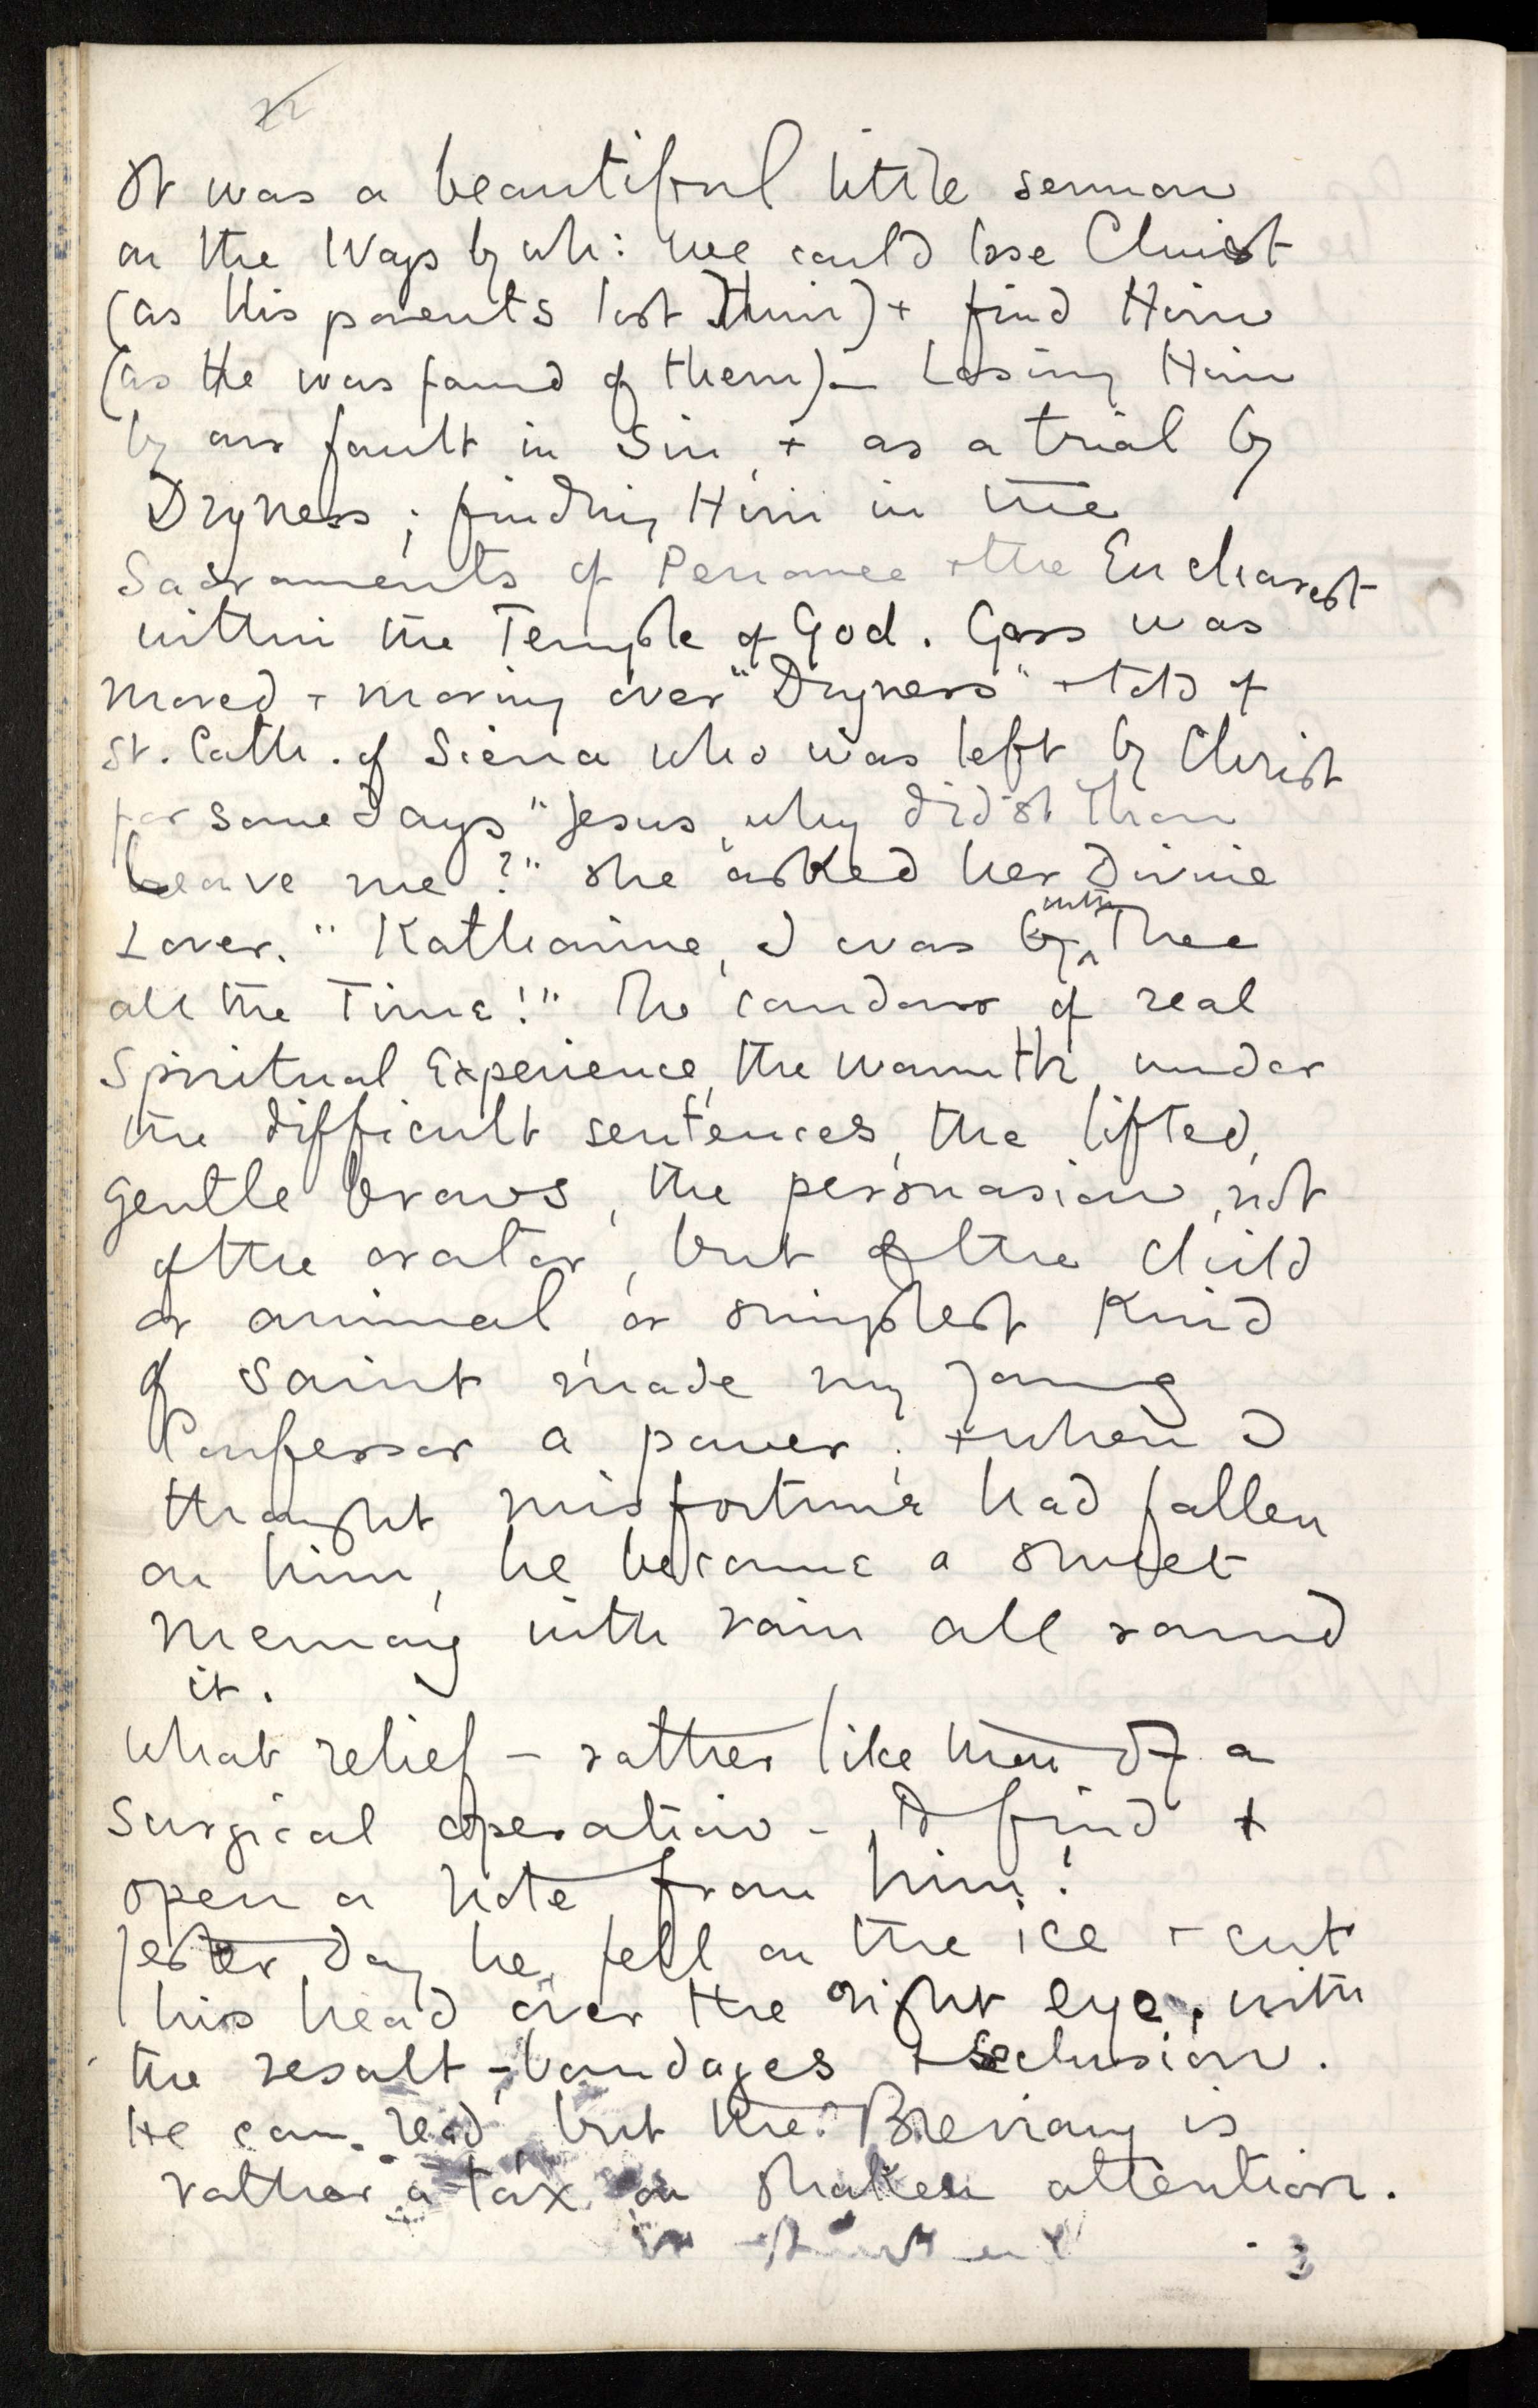 It was a beautiful little sermon
on the Ways by wh: we could lose Christ
(as His parents lost Him) + find Him
(as He was found of them) — Losing Him
by our fault in Sin, + as a trial by
Dryness; finding Him in the
Sacraments of Penance + the Eucharist
within the Temple of God. Goss was
moved + moving over "Dryness" + told of
St. Cath. of Siena who was left by Christ
for some days "Jesus, why didst Thou
leave me?" she asked her Divine
Lover. "Katharine, I was by with Thee
all the Time!" The candour of real
Spiritual Experience, the warmth under
the difficult sentences, the lifted,
gentle brows, the persuasion, not
of the orator, but of the child
or animal or simplest Kind
of Saint made my young
Confessor a power; + when I
thought misfortune had fallen
on him, he became a sweet
memory with rain all round
it.
What relief — rather like that of a
Surgical operation — to find +
open a note from him!
Yesterday he fell on the ice + cut
his head over the right eye, with
the result — bandages + seclusion.
He can read, but the Breviary is
rather a tax on shaken attention.